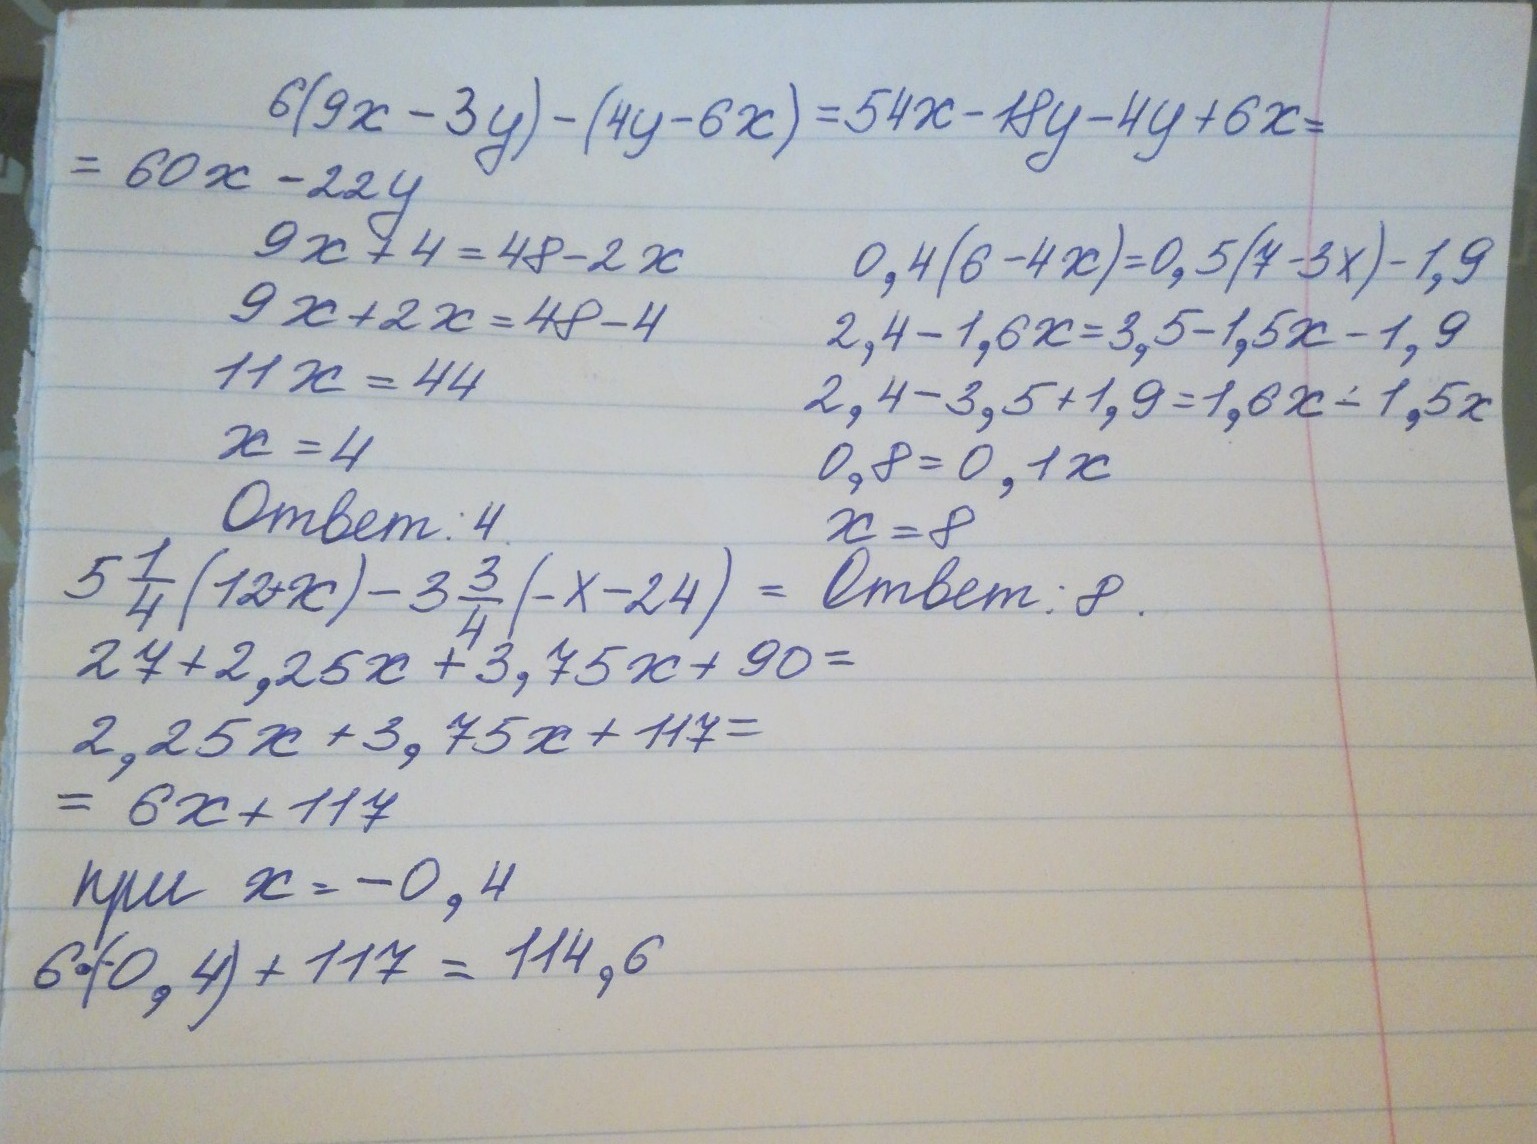 6(9x-3y)-(4y-6x)=54x-18y-4y+6x=
=60x-22y
9x+4=48-2x
9x+2x=48-4
11x=44
x=4
Ответ: 4.
0,4(6-4x)=0,5(7-3x)-1,9
2,4-1,6x=3,5-1,5x-1,9
2,4-3,5+1,9=1,6x-1,5x
0,8=0,1x
x=8
Ответ: 8.
5 1/4 (12+x)-3 3/4 (-x-24)=
27+2,25x+3,75x+90=
2,25x+3,75x+117=
=6x+117
при x=-0,4
6·(-0,4)+117=114,6